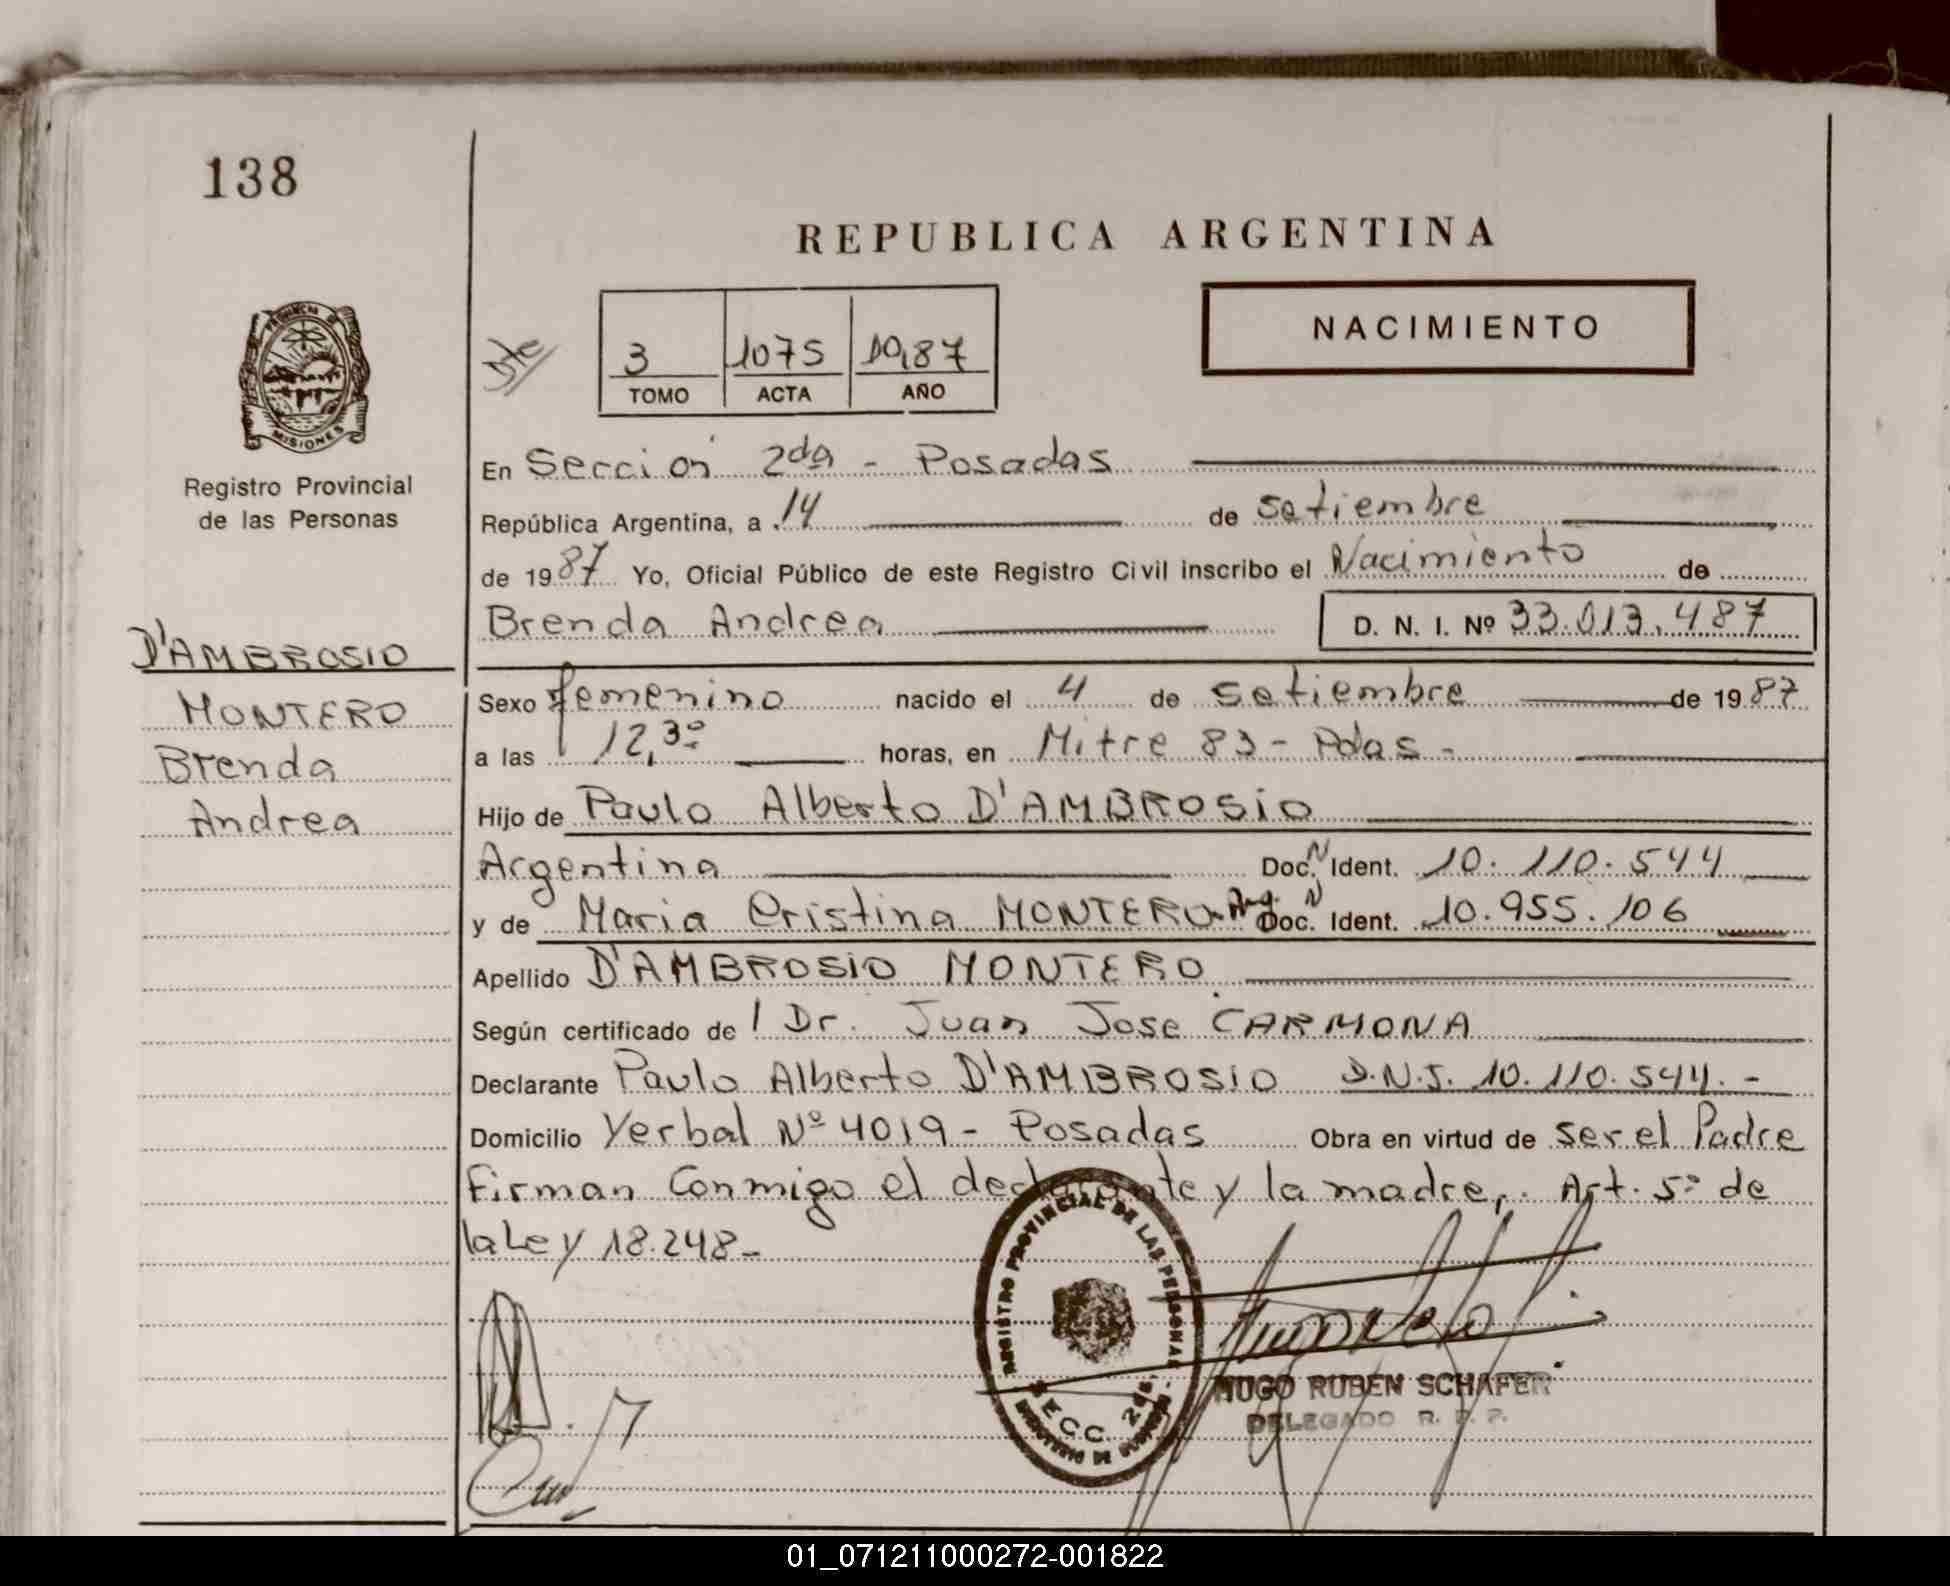 138
REPUBLICA ARGENTINA
NACIMIENTO
3 1075 1987
TOMO ACTA AÑO
PROVINCIA D MISIONES
Registro Provincial
de las Personas
En Sección 2da - Posadas
República Argentina, a 14 de setiembre
de 1987 Yo, Oficial Público de este Registro Civil inscribo el Nacimiento de
Brenda Andrea D. N. I. Nº 33.013.487
D'AMBROSIO
MONTERO
Brenda
Andrea
Sexo femenino nacido el 4 de setiembre de 1987
a las 12,30 horas, en Mitre 83 - Pdas -
Hijo de Paulo Alberto D'AMBROSIO
Argentina Doc. N Ident. 10.110.544
y de Maria Cristina MONTERO - Arg. Doc. N Ident. 10.955.106
Apellido D'AMBROSIO MONTERO
Según certificado de l Dr. Juan Jose CARMONA
Declarante Paulo Alberto D'AMBROSIO D.N.I. 10.110.544.-
Domicilio Yerbal Nº 4019 - Posadas Obra en virtud de ser el Padre
Firman Conmigo el declarante y la madre,. Art. 5º de
la Ley 18.248-
REGISTRO PROVINCIAL DE LAS PERSONAS
SECC. 2da
HUGO RUBEN SCHAFER
DELEGADO R. P. P.
01_071211000272-001822